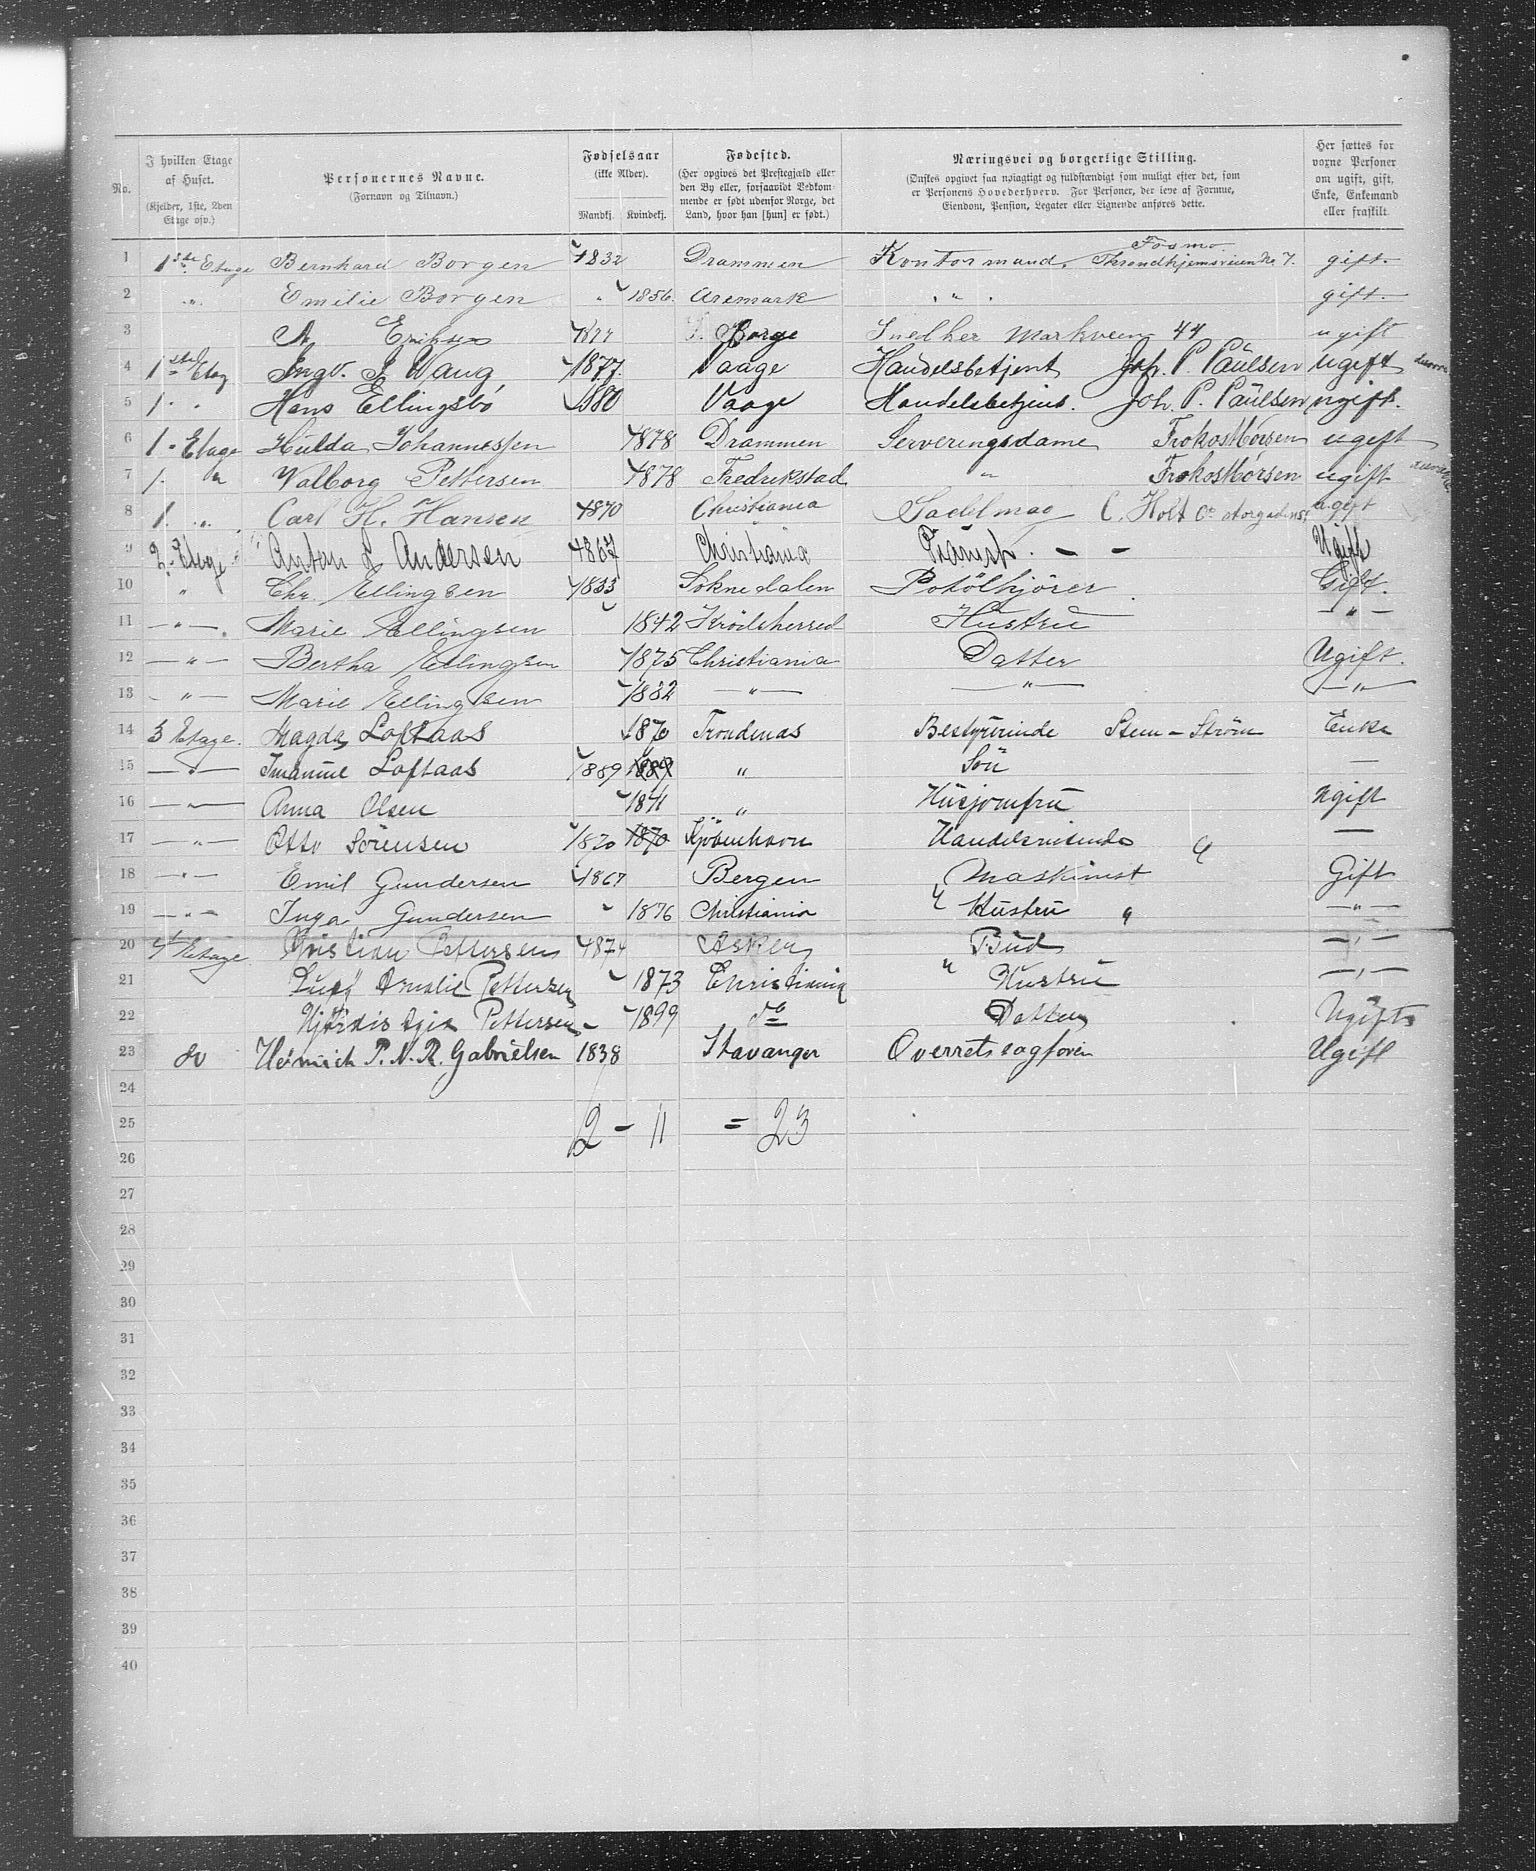 No.
I hvilken Etage af Huset. (Kjelder, 1ste, 2den Etage osv.)
Personernes Navne. (Fornavn og Tilnavn.)
Fødselsaar (ikke Alder). Mandkj. Kvindekj.
Fødested. (Her opgives det Prestegjæld eller den By eller, forsaavidt Vedkommende er født udenfor Norge, det Land, hvor han [hun] er født.)
Næringsvei og borgerlige Stilling. (Ønskes opgivet saa nøiagtigt og fuldstændigt som muligt efter det, som er Personens Hovederhverv. For Personer, der leve af Formue, Eiendom, Pension, Legater eller Lignende anføres dette.)
Her sættes for voxne Personer om ugift, gift, Enke, Enkemand eller fraskilt.
1 1ste Etage Bernhard Borgen 1832 Drammen Kontormand. Fosmo. Throndhjemsveien No 7. gift
2 „ Emilie Borgen 1856. Aremark „ gift
3 A Eriksen 1877 Borge Snedker Markveien 44 ugift
4 1ste Etag Ingv. J. Waug 1877. Vaage Handelsbetjent Joh. P. Paülsen ugift
5 1. „ Hans Ellingsbö 1880 Vaage Handelsbetjent. Joh. P. Paülsen ugift.
6 1 - Etage Hulda Johannessen 1878 Drammen Serveringsdame Frokostbørsen ugift
7 1. „ Valborg Pettersen 1878 Fredrikstad „ Frokostbørsen ugift
8 1. „ Carl H. Hansen 1870 Christiania Sadelmag C. Holt Co Storgadens ugift
9 2. Etage Anton L Andersen 1867 Christiania - - Ugift
10 „ Chr. Ellingsen 1833 Soknedalen Potölkjörer Gift.
11 — „ — Marie Ellingsen 1842 Krödsherred Hustru — „ —
12 — „ — Bertha Ellingsen 1875 Christiania Datter Ugift.
13 — „ — Marie Ellingsen 1882 — „ — — „ — — „ —
14 3 Etage. Magda Loftaas 1870 Trondenas Bestyrerinde Sten - Ström Enke
15 — „ — Imanuel Loftaas 1889 1889 „ Sön —
16 — „ — Anna Olsen 1841 „ Husjomfru Ugift
17 — „ — Otto Sörensen 1870 1870 Kjöbenhavn Handelsreisende „ —
18 — „ — Emil Gundersen 1867 Bergen Maskinist Gift
19 — „ — Inga Gundersen 1876 Christiania „ Hustru „ — „ —
20 4 Etage Kristian Pettersen 1874 Asker Bud — „ —
21 Amalie Pettersen 1873 Christiania „ Hustru — „ —
22 Hjørdis Pettersen 1899 do Datter Ugift
23 do Heinrich P. N. R. Gabrielsen 1838 Stavanger Overretssagfører Ugift
24
25 12 - 11 = 23
26
27
28
29
30
31
32
33
34
35
36
37
38
39
40